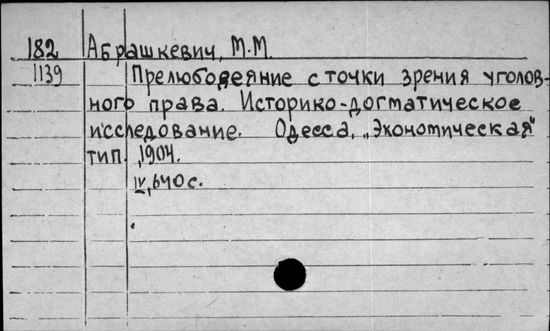 182 Абрашкевич, М.М.
1139 Прелюбодеяние с точки зрения уголов-
ного права. Историко-догматическое
исследование. Одесса, „Экономическая"
тип. ,1904.
IV,640 с.